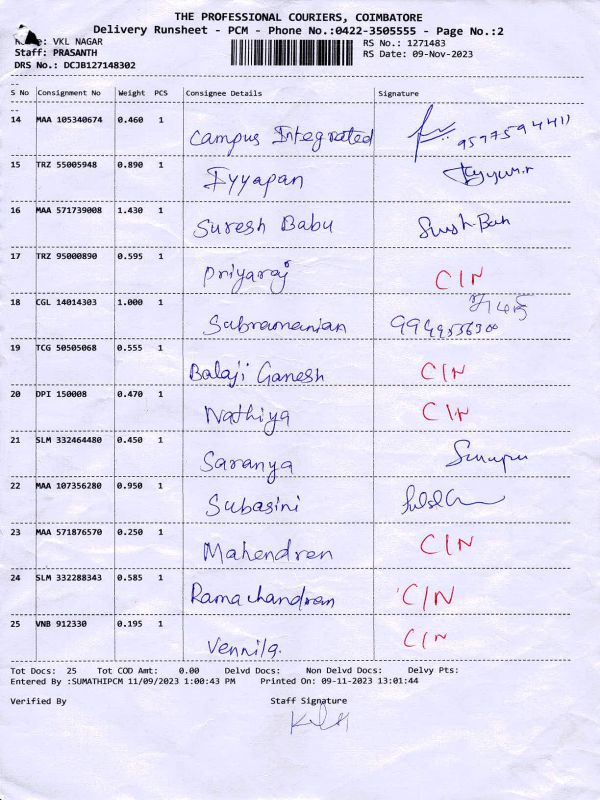 THE PROFESSIONAL COURIERS, COIMBATORE
Delivery Runsheet - PCM - Phone No.:0422-3505555 - Page No.:2
VKL NAGAR
Staff: PRASANTH
DRS No.: DCJB127148302
RS No.: 1271483
RS Date: 09-Nov-2023
S No Consignment No Weight PCS Consignee Details Signature
14 MAA 105340674 0.460 1 Campus Integrated 9597594411
15 TRZ 55005948 0.890 1 Iyyapan
16 MAA 571739008 1.430 1 Suresh Babu
17 TRZ 95000890 0.595 1 Priyaraj C/N
18 CGL 14014303 1.000 1 Subramanian
19 TCG 50505068 0.555 1 Balaji Ganesh C/N
20 DPI 150008 0.470 1 Nathiya C/N
21 SLM 332464480 0.450 1 Saranya
22 MAA 107356280 0.950 1 Subasini
23 MAA 571876570 0.250 1 Mahendren C/N
24 SLM 332288343 0.585 1 Ramachandran C/N
25 VNB 912330 0.195 1 Vennila. C/N
Tot Docs: 25 Tot COD Amt: 0.00 Delvd Docs: Non Delvd Docs: Delvy Pts:
Entered By :SUMATHIPCM 11/09/2023 1:00:43 PM Printed On: 09-11-2023 13:01:44
Verified By Staff Signature